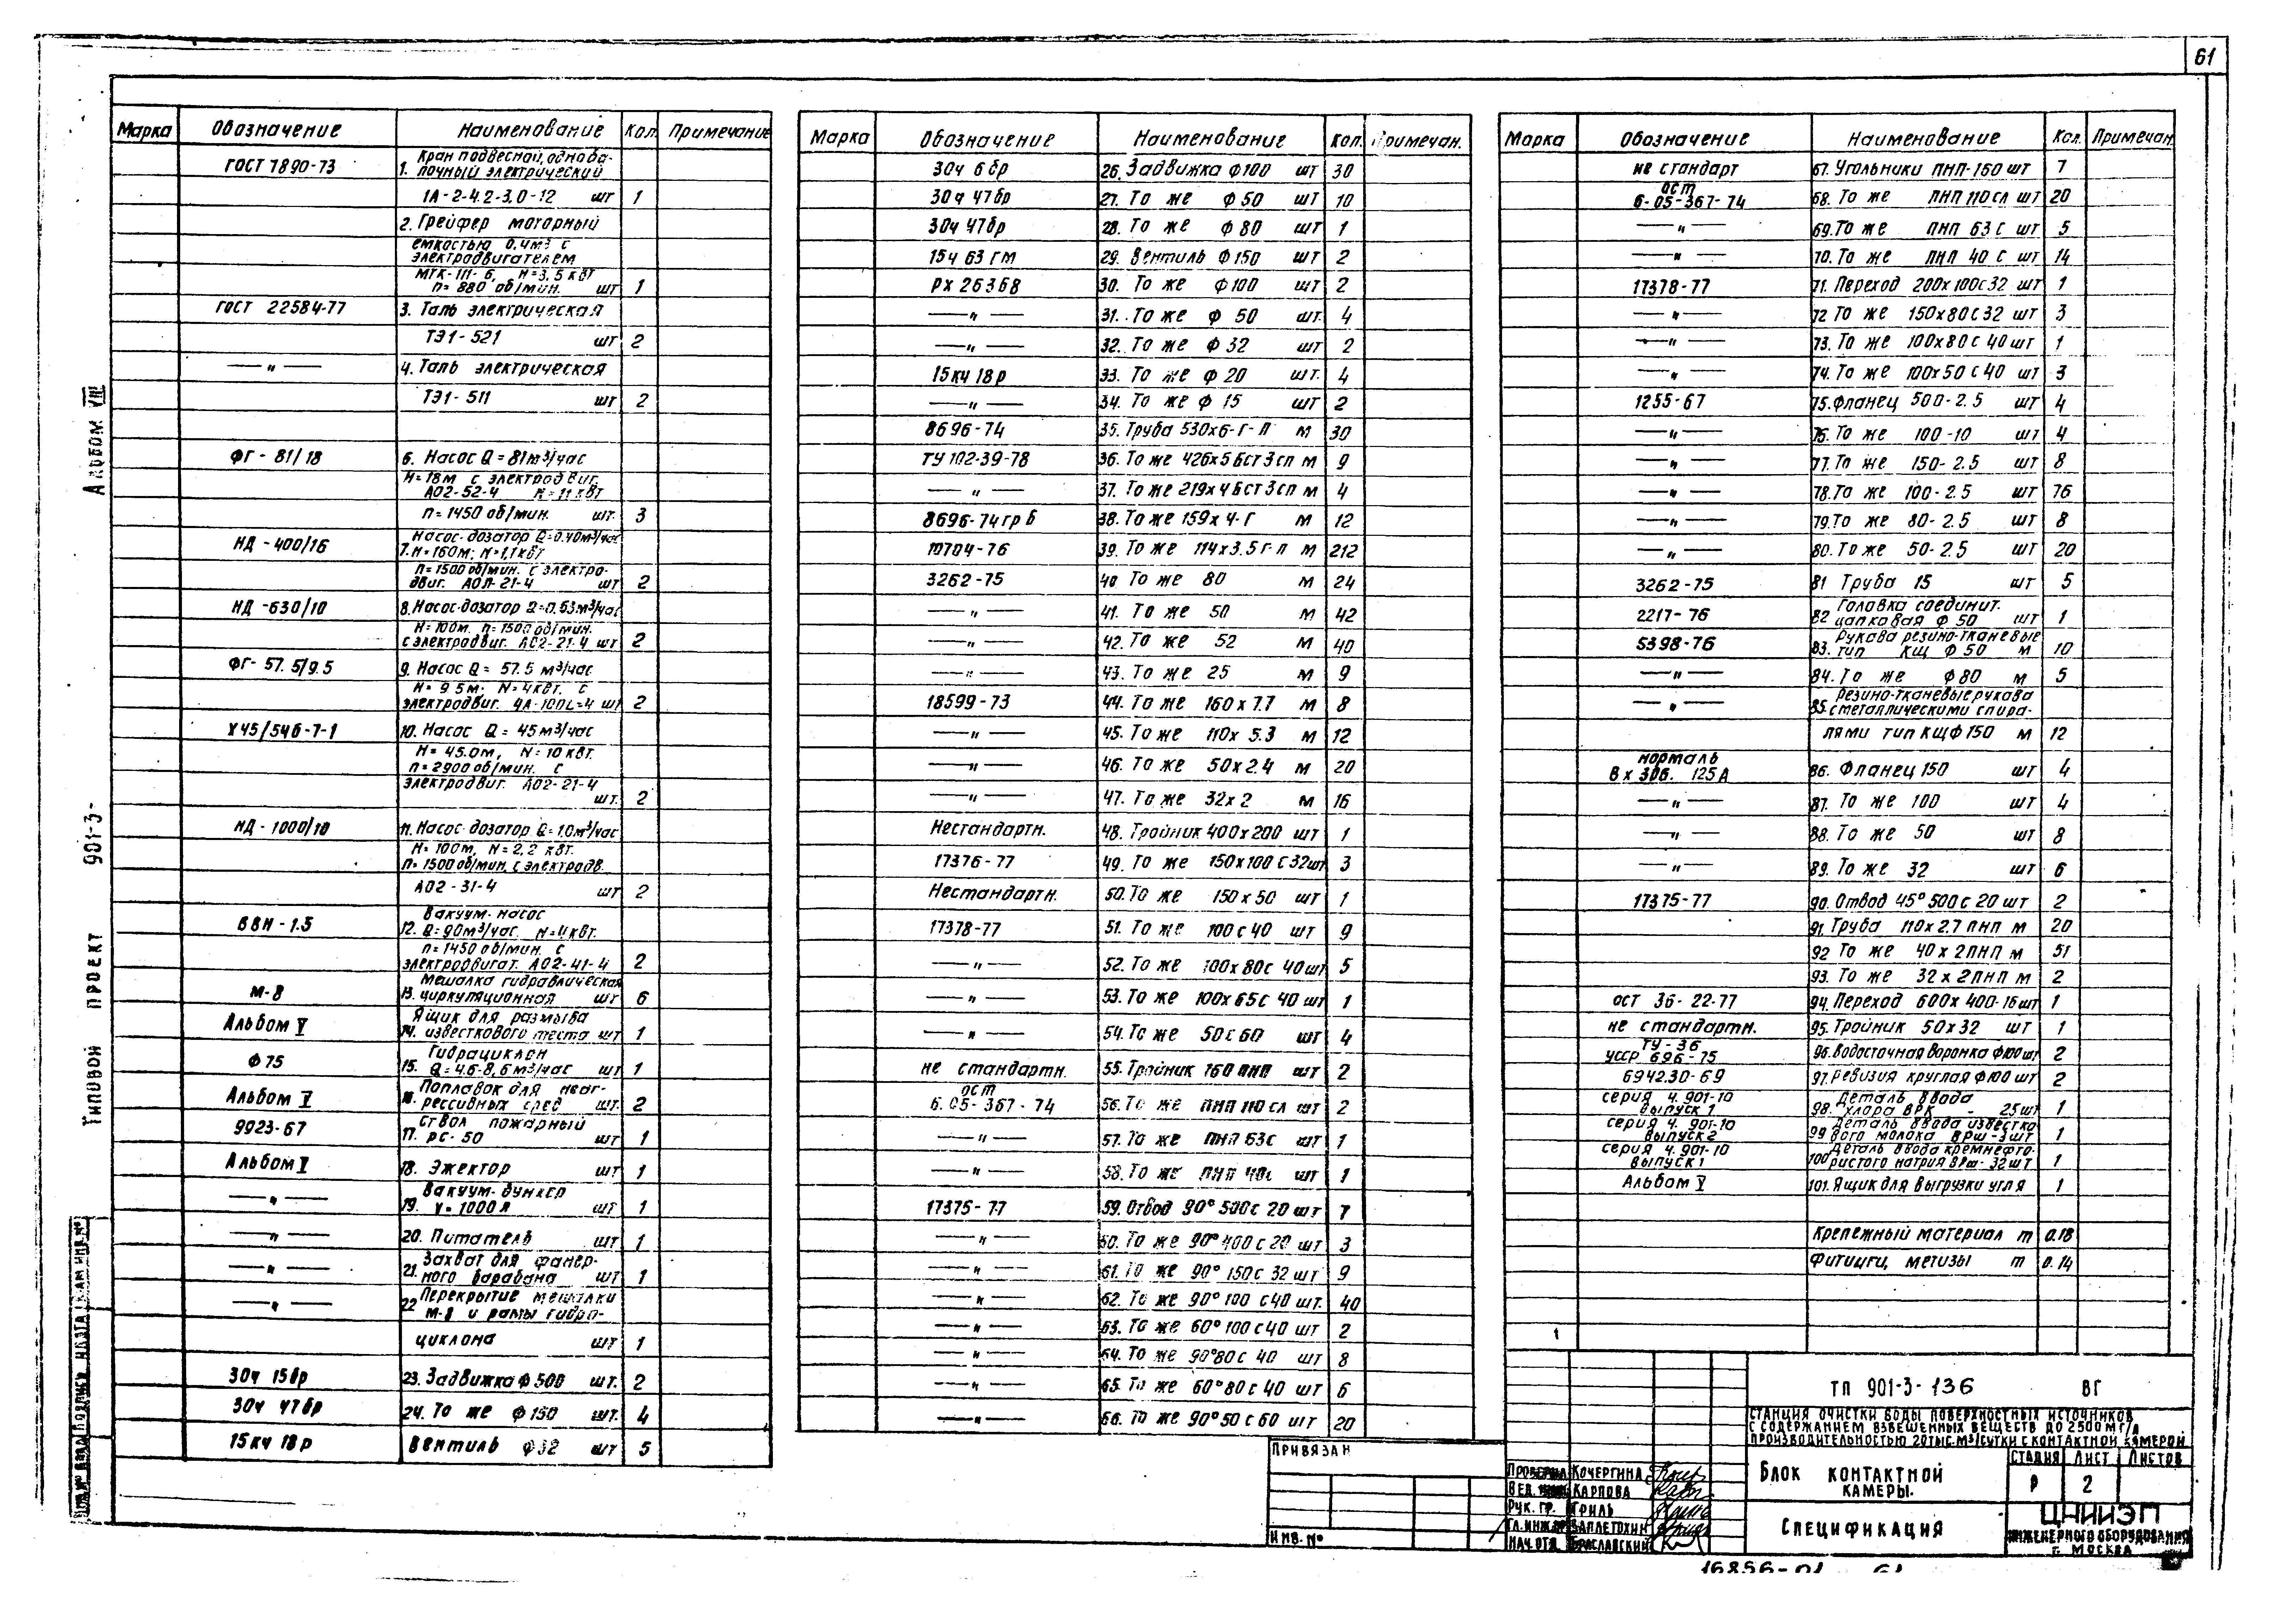 61
Марка Обозначение Наименование Кол. Примечание
ГОСТ 7890-73 1. Кран подвесной, одноба-
лочный электрический
1А-2-4.2-3,0-12 шт 1
2. Грейфер моторный
емкостью 0.4м3 с
электродвигателем
МТК-111-6, N=3,5 квт
n= 880 об/мин. шт 1
ГОСТ 22584-77 3. Таль электрическая
ТЭ1-521 шт 2
—"— 4. Таль электрическая
ТЭ1-511 шт 2
ФГ-81/18 6. Насос Q=81м3/час
Н=18м с электродвиг.
АО2-52-4 N=11квт
n=1450 об/мин. шт. 3
НД-400/16 Насос-дозатор Q=0.40м3/час
7. Н=160м; N=1,1квт
n=1500 об/мин. с электро-
двиг. АОЛ-21-4 шт 2
НД-630/10 8. Насос-дозатор Q=0.63м3/час
Н=100м. n=1500 об/мин.
с электродвиг. АО2-21-4 шт 2
ФГ-57.5/9.5 9. Насос Q= 57.5 м3/час
Н= 9 5м; N=4квт. с
электродвиг. 4А-100L-4 шт 2
Х45/54б-7-1 10. Насос Q= 45м3/час
Н= 45.0м, N=10 квт.
n=2900 об/мин. с
электродвиг. АО2-21-4
шт. 2
НД-1000/10 11. Насос-дозатор Q=1.0м3/час
Н=100м, N=2,2 квт.
n=1500 об/мин. с электродв.
АО2-31-4 шт 2
ВВН-1.5 Вакуум-насос
12. Q=90м3/час. N=4квт.
n=1450 об/мин. с
электродвигат. АО2-41-4 2
М-8 Мешалка гидравлическая
13. циркуляционная шт 6
Альбом V Ящик для размыва
14. известкового теста шт 1
Ф75 Гидроциклон
15. Q=4.6-8,6м3/час шт 1
Альбом V Поплавок для неаг-
16. рессивных сред шт. 2
9923-67 Ствол пожарный
17. РС-50 шт 1
Альбом V 18. Эжектор шт 1
—"— Вакуум-бункер
19. V=1000л шт 1
—"— 20. Питатель шт 1
—"— Захват для фанер-
21. ного барабана шт 1
—"— 22 Перекрытие мешалки
М-8 и рамы гидро-
циклона шт 1
30ч 15бр 23. Задвижка ф500 шт. 2
30ч 47бр 24. То же ф150 шт. 4
15кч 18р Вентиль ф32 шт 5
Марка Обозначение Наименование Кол. Примечан.
30ч 6бр 26. Задвижка ф100 шт 30
30ч 47бр 27. То же ф50 шт 10
30ч 47бр 28. То же ф80 шт 1
15ч 63гм 29. Вентиль ф150 шт 2
РХ 26368 30. То же ф100 шт 2
—"— 31. То же ф 50 шт. 4
—"— 32. То же ф32 шт 2
15кч 18р 33. То же ф20 шт. 4
—"— 34. То же ф 15 шт 2
8696-74 35. Труба 530х6-Г-Л м 30
ТУ 102-39-78 36. То же 426х5 Бст3сп м 9
—"— 37. То же 219х4 Бст3сп м 4
8696-74 гр Б 38. То же 159х4-Г м 12
10704-76 39. То же 114х3.5 Г-Л м 212
3262-75 40 То же 80 м 24
—"— 41. То же 50 м 42
—"— 42. То же 52 м 40
—"— 43. То же 25 м 9
18599-73 44. То же 160х7.7 м 8
—"— 45. То же 110х5.3 м 12
—"— 46. То же 50х2.4 м 20
—"— 47. То же 32х2 м 16
Нестандартн. 48. Тройник 400х200 шт 1
17376-77 49. То же 150х100 С32шт 3
Нестандартн. 50. То же 150х50 шт 1
17378-77 51. То же 100 с40 шт 9
—"— 52. То же 100х80с 40шт 5
—"— 53. То же 100х65с 40 шт 1
—"— 54. То же 50с60 шт 4
не стандартн. 55. Тройник 160 ПНП шт 2
ост
6.05-367-74 56. То же ПНП 110 СЛ шт 2
—"— 57. То же ПНП 63с шт 1
—"— 58. То же ПНП 40с шт 1
17375-77 59. Отвод 90° 500с 20 шт 7
—"— 60. То же 90° 400с20 шт 3
—"— 61. То же 90° 150с 32 шт 9
—"— 62. То же 90° 100 с40 шт. 40
—"— 63. То же 60° 100с40 шт 2
—"— 64. То же 90° 80с 40 шт 8
—"— 65. То же 60° 80с40 шт 6
—"— 66. То же 90° 50с60 шт 20
Марка Обозначение Наименование Кол. Примечан.
не стандарт 67. Угольники ПНП-160 шт 7
ост
6-05-367-74 68. То же ПНП 110 сл шт 20
—"— 69. То же ПНП 63 с шт 5
—"— 70. То же ПНП 40 с шт 14
17378-77 71. Переход 200х100с32 шт 1
—"— 72 То же 150х80с32 шт 3
—"— 73. То же 100х80с40шт 1
—"— 74. То же 100х50с40 шт 3
1255-67 75. Фланец 500-2.5 шт 4
—"— 76. То же 100-10 шт 4
—"— 77. То же 150-2.5 шт 8
—"— 78. То же 100-2.5 шт 76
—"— 79. То же 80-2.5 шт 8
—"— 80. То же 50-2.5 шт 20
3262-75 81 Труба 15 шт 5
2217-76 82 Головка соединит.
цапковая ф 50 шт 1
5398-76 83. Рукава резино-тканевые
тип КЩ ф50 м 10
—"— 84. То же ф80 м 5
—"— 85. Резино-тканевые рукава
с металлическими спира-
лями тип КЩф150 м 12
нормаль
Вх 306. 125А 86. Фланец 150 шт 4
—"— 87. То же 100 шт 4
—"— 88. То же 50 шт 8
—"— 89. То же 32 шт 6
17375-77 90. Отвод 45° 500с 20 шт 2
91. Труба 110х2.7 ПНП м 20
92 То же 40х2ПНП м 51
93. То же 32х2ПНП м 2
ост 36-22-77 94. Переход 600х400-16шт 1
не стандартн. 95. Тройник 50х32 шт 1
ТУ-36
УССР 696-75 96. Водосточная воронка ф100шт 2
6942.30-69 97. Ревизия круглая ф100 шт 2
серия 4.901-10
выпуск 1 98. Деталь ввода
хлора ВРК - 25шт 1
серия 4.901-10
выпуск 2 99 Деталь ввода известко
вого молока ВРш-3шт 1
серия 4.901-10
выпуск 1 100 Деталь ввода кремнефто-
ристого натрия ВРш-32шт 1
Альбом V 101. Ящик для выгрузки угля 1
Крепежный материал т 0.18
Фитинги, метизы т 0.14
Альбом VIII
Типовой проект 901-3-
Привязан
Инв. №
Проверил Кочергина
Вед. Карпова
Рук. гр. Гриль
Гл. инж. пр Заплетохин
Нач. отд. Браславский
ТП 901-3-136 ВГ
Станция очистки воды поверхностных источников
с содержанием взвешенных веществ до 2500мг/л
производительностью 20тыс.м3/сутки с контактной камерой
Блок контактной
камеры.
Стадия Лист Листов
Р 2
Спецификация
ЦНИИЭП
инженерного оборудования
г. Москва
16856-01 61